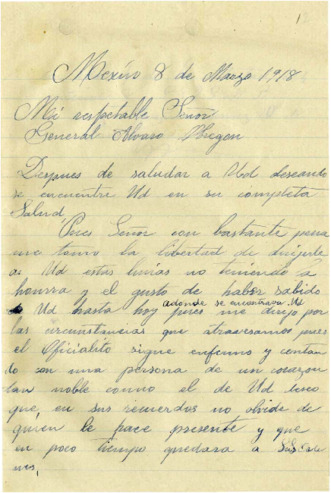 1
Mexico 8 de Marzo 1918
Mi respetable Señor
General Alvaro Obregon
Despues de saludar a Usd deseando
se encuentre Ud en su completa
Salud
Pues Señor con bastante pena
me tomo la libertad de dirijirle
a Ud estas lineas no teniendo a
honrra y el gusto de haber sabido
de Ud hasta hoy adonde se encontrava Ud
pues me dirijo por
las circunstancias que atravesamos pues
el Oficialito sigue enfermo y contan
do con una persona de un corazon
tan noble como el de Ud
que, en sus recuerdos no olvide de
quien le hace presente y que
en poco tiempo quedara a Sus orde
nes,